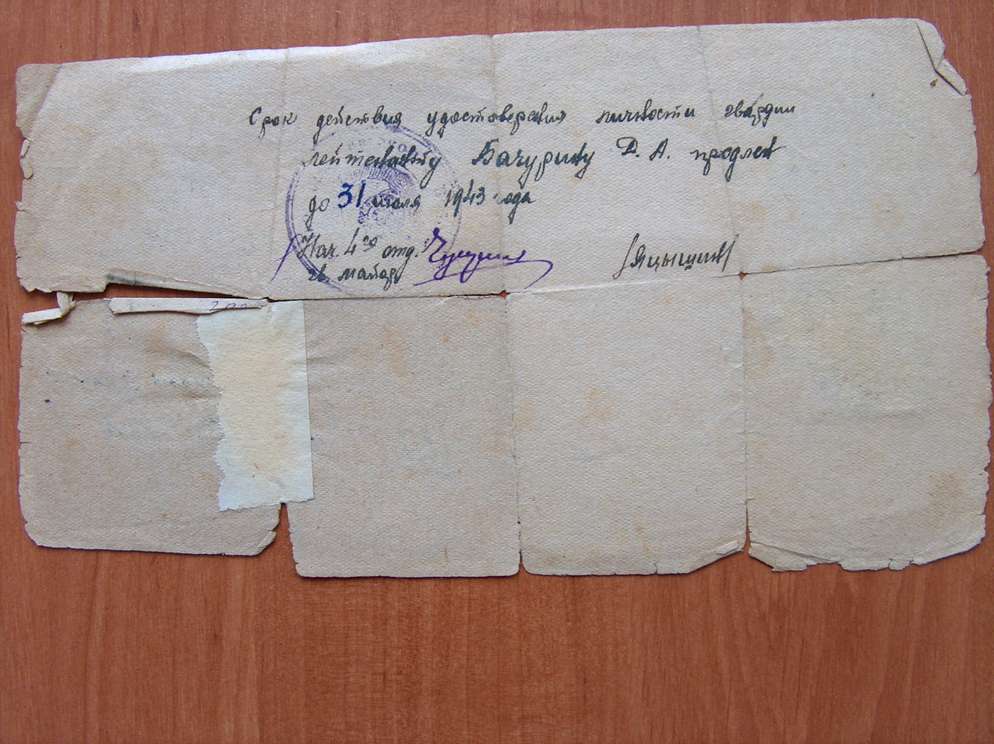 Срок действия удостоверения личности гвардии
лейтенанту Бачурину Д. А. продлен
до 31 июля 1943 года
Нач. 4го отд.
гв. майор /Яцышин/